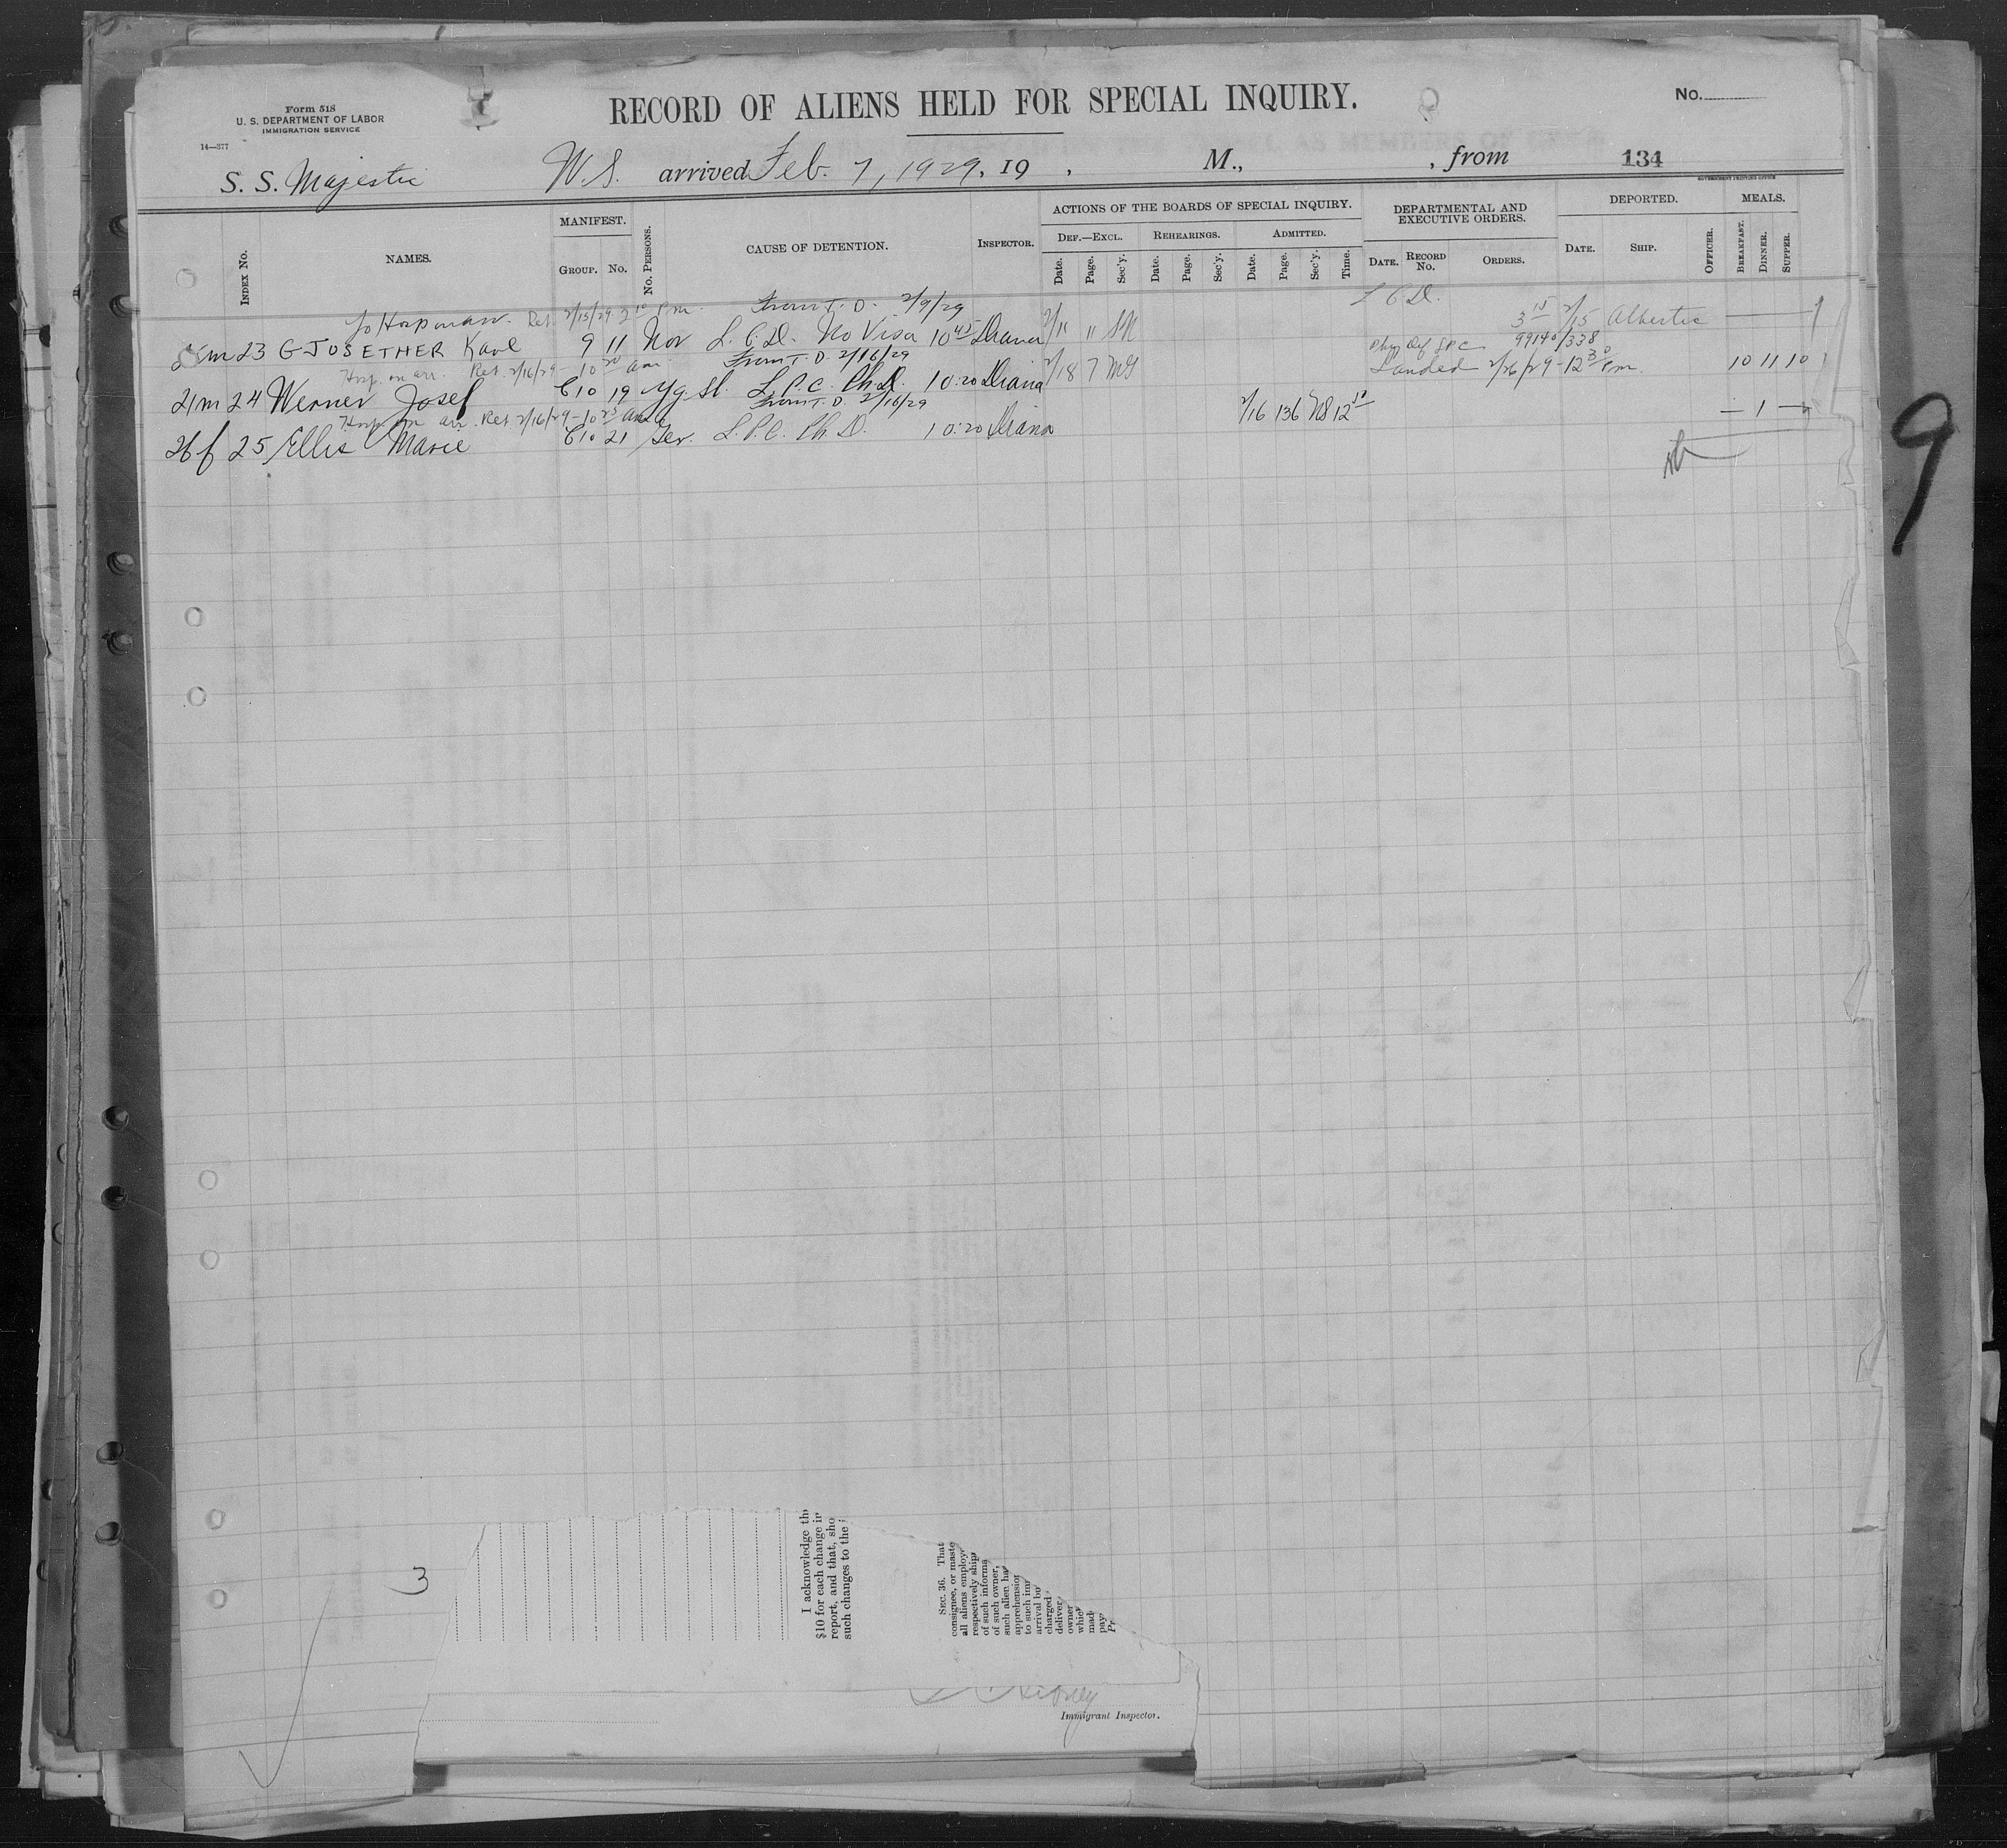 Form 518
U. S. DEPARTMENT OF LABOR
IMMIGRATION SERVICE
14—377
RECORD OF ALIENS HELD FOR SPECIAL INQUIRY.
No.
S. S. Majestic W.S. arrived Feb. 7, 1929, 19 , M., , from 134
GOVERNMENT PRINTING OFFICE
INDEX No. NAMES. MANIFEST. GROUP. No. No. PERSONS. CAUSE OF DETENTION. INSPECTOR. ACTIONS OF THE BOARDS OF SPECIAL INQUIRY. DEF.—EXCL. Date. Page. Sec'y. REHEARINGS. Date. Page. Sec'y. ADMITTED. Date. Page. Sec'y. Time. DEPARTMENTAL AND EXECUTIVE ORDERS. DATE. RECORD No. ORDERS. DEPORTED. DATE. SHIP. OFFICER. MEALS. BREAKFAST. DINNER. SUPPER.
To Hosp on arr. Ret 2/15/29 2 10 Pm. From T. D. 2/9/29
m 23 GJOSETHER Karl 9 11 Nor No Visa 10 45 Diana 2/11 " 3 15 2/15 Albertic
Hosp. on arr. Ret. 2/16/29 - 10 20 am From T. D. 2/16/29 99140/338
21m 24 Werner Josef C10 19 L.P.C. Ph.D. 10:20 Diana 2/18 7 Landed 2/26/29 - 12 30 Pm. 10 11 10
Hosp on arr. Ret 2/16/29 - 10 25 am From T. D. 2/16/29
26 f 25 Ellis Marie C10 21 Ger. L.P.C. Ph.D. 10:20 Diana 2/16 136 — 1 —
9
3
I acknowledge th
$10 for each change in
report, and that, sho
such changes to the
SEC. 36. That
consignee, or maste
all aliens employ
respectively ship
of such informa
of such owner,
such alien ha
apprehension
to such im
arrival bo
charged
deliver
owner
which
mad
pay
Pr
Immigrant Inspector.